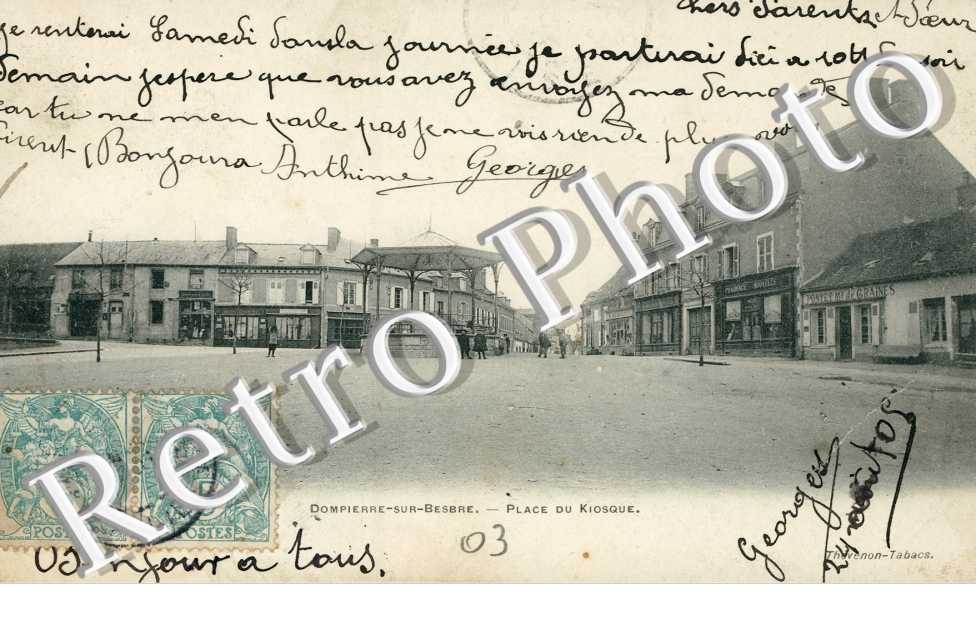 chers Parents et Sœur
je renterai Samedi dans la journée je partirai d'ici a 10h du soir
demain jespère que vous avez envoyez ma demande
car tu ne men parle pas je ne vois rien de plus
Bonjour a Anthime Georges
PHARMACIE
GRAINES
Retro Photo
POSTES
POSTES
DOMPIERRE-SUR-BESBRE. — PLACE DU KIOSQUE.
03
Thévenon-Tabacs.
Georges
24 août 05
Bonjour a tous.